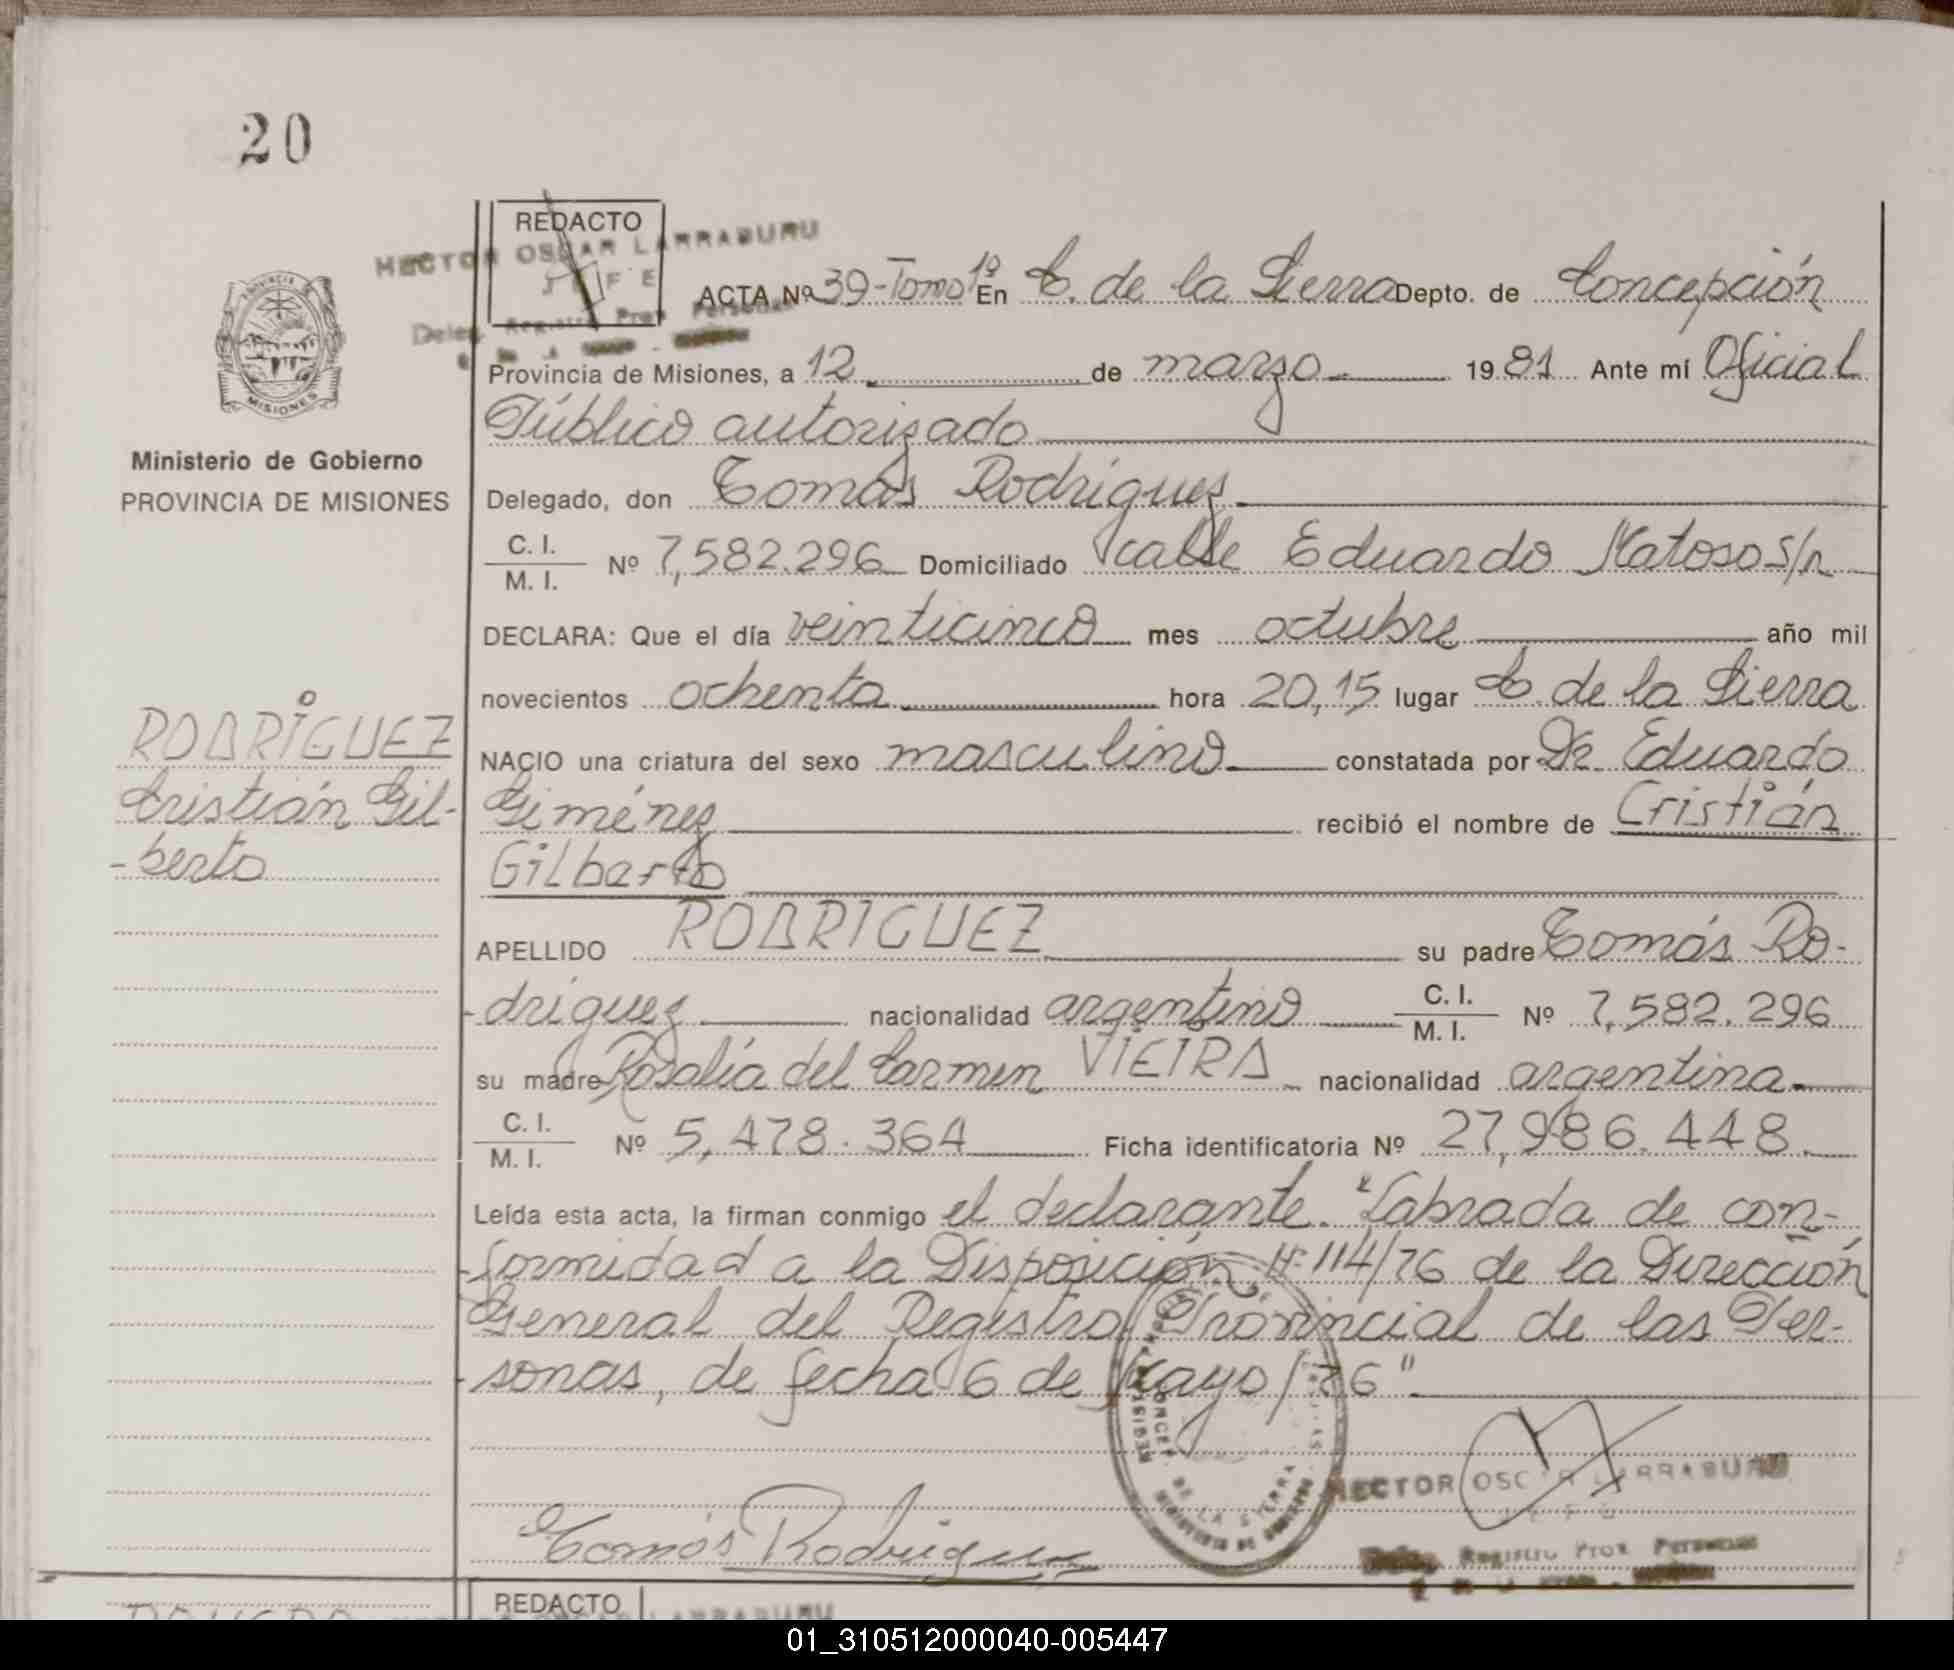 20
REDACTO
HECTOR OSCAR LARRABURU
JEFE
ACTA Nº 39-Tomo 1º En C. de la Sierra Depto. de Concepción
Deleg. Registro Prov. Personas
Provincia de Misiones, a 12 de marzo 1981 Ante mí Oficial
Público autorizado
MISIONES
Ministerio de Gobierno
PROVINCIA DE MISIONES
Delegado, don Tomás Rodriguez
C. I.
M. I. Nº 7,582.296 Domiciliado calle Eduardo Matoso s/n
DECLARA: Que el día veinticinco mes octubre año mil
novecientos ochenta hora 20,15 lugar C. de la Sierra
RODRÍGUEZ
Cristián Gil-
-berto
NACIO una criatura del sexo masculino constatada por Dr. Eduardo
Giménez recibió el nombre de Cristián
Gilberto
APELLIDO RODRIGUEZ su padre Tomás Ro-
-driguez nacionalidad argentino C. I.
M. I. Nº 7,582.296
su madre Rosalía del Carmen VIEIRA nacionalidad argentina
C. I.
M. I. Nº 5,478.364 Ficha identificatoria Nº 27,986.448
Leída esta acta, la firman conmigo el declarante. "Labrada de con-
-formidad a la Disposición Nº 114/76 de la Dirección
General del Registro Provincial de las Per-
-sonas, de fecha 6 de Mayo/76"
DE LA SIERRA
HECTOR OSCAR LARRABURU
JEFE
Deleg. Registro Prov. Personas
Tomás Rodriguez
REDACTO
LARRABURU
01_310512000040-005447